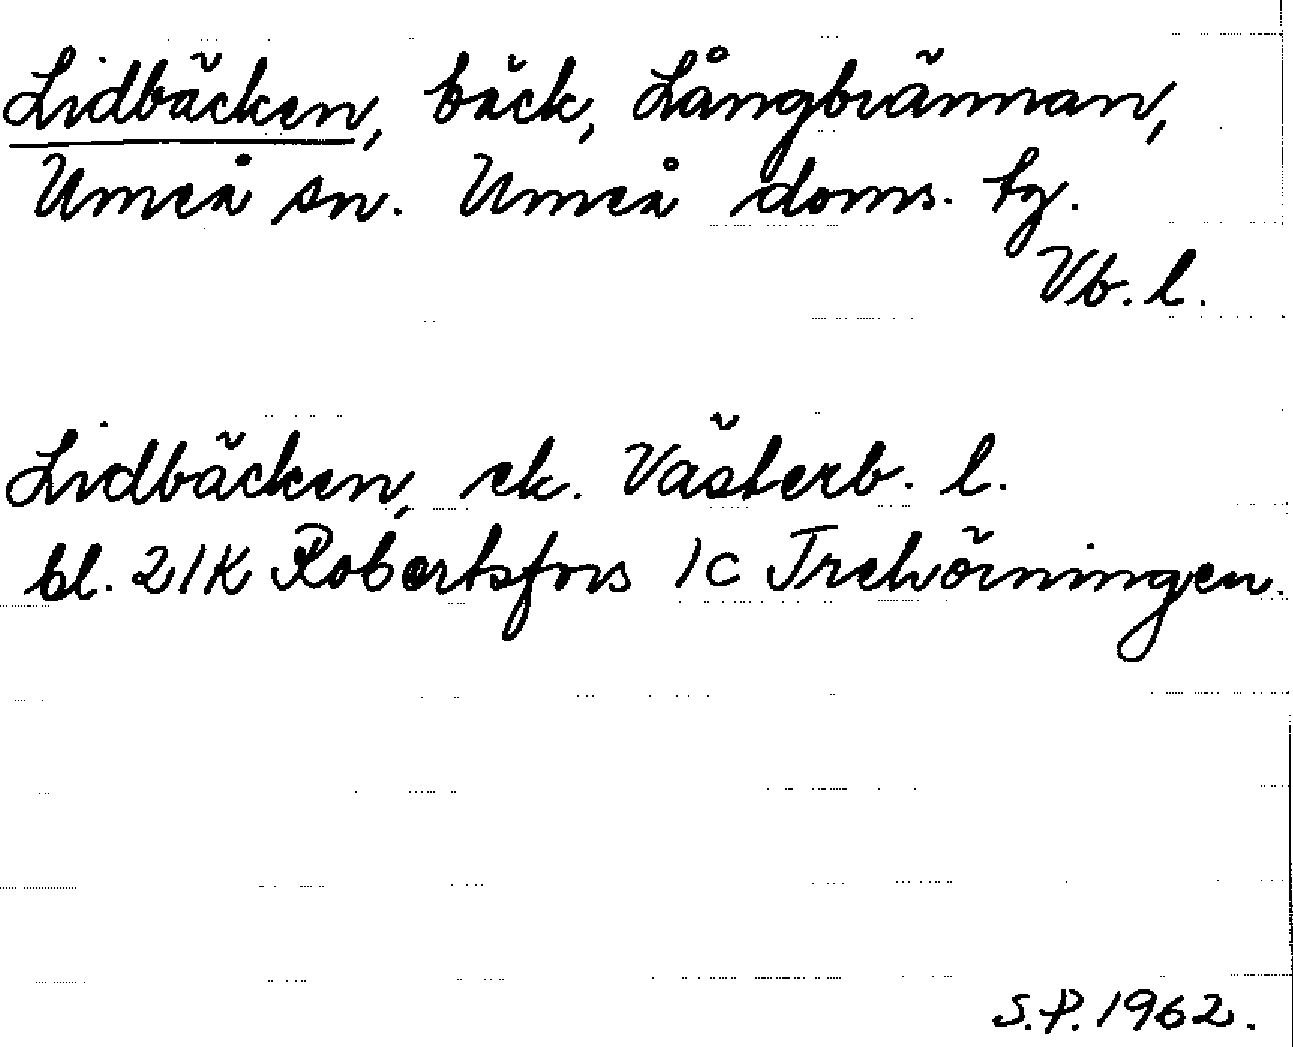 Lidbäcken, bäck, Långbrännan,
Umeå sn. Umeå doms. tg.
Vb. l.
Lidbäcken, ek. Västerb. l.
bl. 21K Robertsfors 1c Trehörningen.
S.P. 1962.